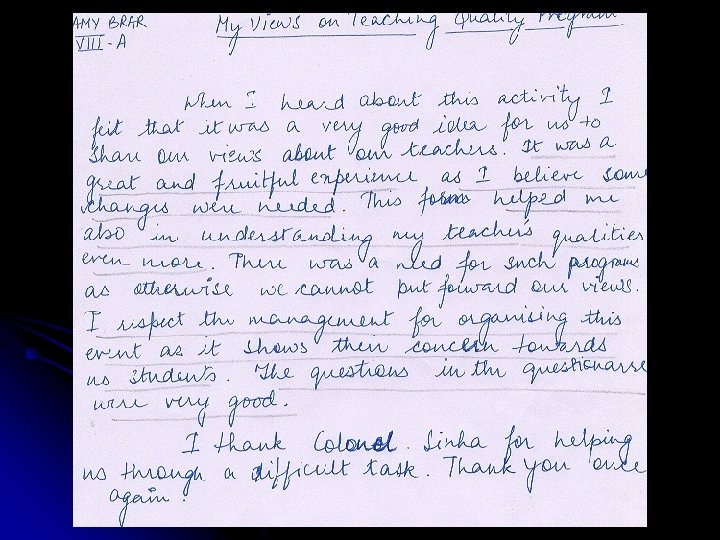 AMY BRAR
VIII-A
My Views on Teaching Quality Program
When I heard about this activity I
felt that it was a very good idea for us to
share our views about our teachers. It was a
great and fruitful experience as I believe some
changes were needed. This forms helped me
also in understanding my teacher's qualities
even more. There was a need for such programs
as otherwise we cannot put forward our views.
I respect the management for organising this
event as it shows their concern towards
us students. The questions in the questionarre
were very good.
I thank Colonel. Sinha for helping
us through a difficult task. Thank you once
again.